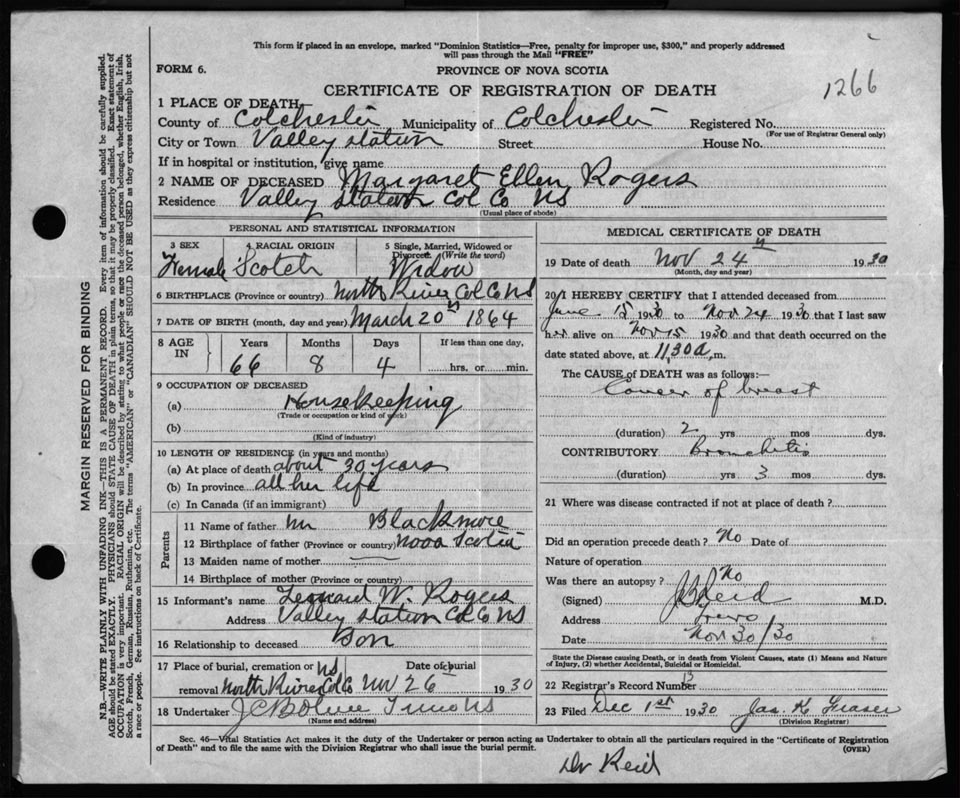 This form if placed in an envelope, marked "Dominion Statistics—Free, penalty for improper use, $300," and properly addressed
will pass through the Mail "FREE"
FORM 6. PROVINCE OF NOVA SCOTIA
CERTIFICATE OF REGISTRATION OF DEATH 1266
1 PLACE OF DEATH
County of Colchester Municipality of Colchester Registered No.
(For use of Registrar General only)
City or Town Valley Station Street House No.
If in hospital or institution, give name
2 NAME OF DECEASED Margaret Ellen Rogers
Residence Valley Station Col Co NS
(Usual place of abode)
PERSONAL AND STATISTICAL INFORMATION
3 SEX 4 RACIAL ORIGIN 5 Single, Married, Widowed or
Divorced. (Write the word)
Female Scotch Widow
6 BIRTHPLACE (Province or country) North River Col Co NS
7 DATE OF BIRTH (month, day and year) March 20th 1864
8 AGE IN Years Months Days If less than one day,
66 8 4 hrs. or min.
9 OCCUPATION OF DECEASED
(a) Housekeeping
(Trade or occupation or kind of work)
(b)
(Kind of industry)
10 LENGTH OF RESIDENCE (in years and months)
(a) At place of death about 30 years
(b) In province all her life
(c) In Canada (if an immigrant)
Parents
11 Name of father Mr Blackmore
12 Birthplace of father (Province or country) Nova Scotia
13 Maiden name of mother —
14 Birthplace of mother (Province or country)
15 Informant's name Leonard W. Rogers
Address Valley Station Col Co NS
16 Relationship to deceased Son
17 Place of burial, cremation or NS Date of burial
removal North River Col Co Nov 26 1930
18 Undertaker Truro NS
(Name and address)
MEDICAL CERTIFICATE OF DEATH
19 Date of death Nov 24 1930
(Month, day and year)
20 I HEREBY CERTIFY that I attended deceased from
June 15 1930 to Nov 24 1930 that I last saw
her alive on Nov 15 1930 and that death occurred on the
date stated above, at 11,30 a, m.
The CAUSE OF DEATH was as follows:—
Cancer of breast
(duration) 2 yrs mos dys.
CONTRIBUTORY Bronchitis
(duration) yrs 3 mos dys.
21 Where was disease contracted if not at place of death?
Did an operation precede death? No Date of
Nature of operation
Was there an autopsy? No
(Signed) Reid M.D.
Address Truro
Date Nov 30/30
State the Disease causing Death, or in death from Violent Causes, state (1) Means and Nature
of Injury, (2) whether Accidental, Suicidal or Homicidal.
22 Registrar's Record Number 13
23 Filed Dec 1st 1930 Jas. K. Fraser
(Division Registrar)
Sec. 46—Vital Statistics Act makes it the duty of the Undertaker or person acting as Undertaker to obtain all the particulars required in the "Certificate of Registration
of Death" and to file the same with the Division Registrar who shall issue the burial permit. (OVER)
Dr Reid
MARGIN RESERVED FOR BINDING
N.B.—WRITE PLAINLY WITH UNFADING INK—THIS IS A PERMANENT RECORD. Every item of information should be carefully supplied.
AGE should be stated EXACTLY. PHYSICIANS should STATE CAUSE OF DEATH in plain terms, so that it may be properly classified. Exact statement of
OCCUPATION is very important. RACIAL ORIGIN will be described by stating to what people or race the deceased person belonged, whether English, Irish,
Scotch, French, German, Russian, Ruthenian, etc. The terms "AMERICAN" or "CANADIAN" SHOULD NOT BE USED as they express citizenship but not
a race or people. See instructions on back of Certificate.